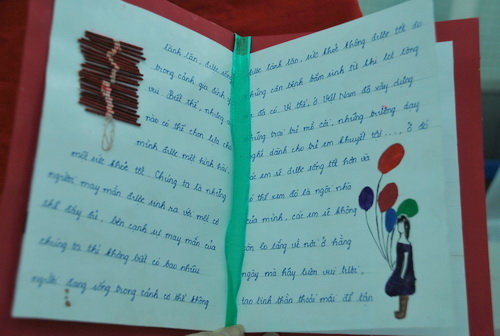 lành lặn, được sống
trong cảnh gia đình
vui. Biết thế, nhưng
nào có thể chọn lựa cho
mình được một hình hài,
một sức khỏe tốt. Chúng ta là những
người may mắn được sinh ra với một cơ
thể đầy đủ, bên cạnh sự may mắn của
chúng ta thì không biết có bao nhiêu
người đang sống trong cảnh cơ thể không
được lành lặn, sức khoẻ không được tốt do
những căn bệnh bẩm sinh từ khi lọt lòng
đã có. Vì thế, ở Việt Nam đã xây dựng
những trại trẻ mồ côi, những trường dạy
nghề dành cho trẻ em khuyết tật..., ở đó
các em sẽ được sống tốt hơn và
có thể xem đó là ngôi nhà
của mình, các em sẽ không
còn lo lắng về nơi ở hằng
ngày mà hãy luôn vui tươi,
tạo tinh thần thoải mái để tận